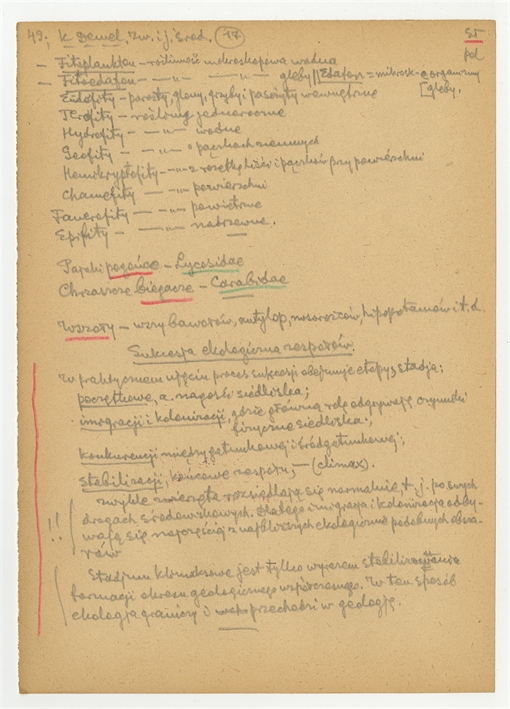 49; K. Demel, Zw. i j. środ. (17)
ST
pol
— Fitoplankton — roślinność mikroskopowa wodna
— Fitoedafon — „ — „ — gleby || Edafon = mikrosk-e organizmy
[gleby.
Endofity — porosty, glony, grzyby i pasożyty wewnętrzne
Terofity — rośliny jednoroczne
Hydrofity — „ — wodne
Geofity — „ — o pączkach ziemnych
Hemikryptofity — „ — z rozetką liści i pączków przy powierzchni
Chamefity — „ — powierzchni
Fanerofity — „ — powietrzne
Epifity — „ — nadrzewne.
Pająki pogońce — Lycosidae
Chrząszcze biegacze — Carabidae
Wszoły — wszy bawołów, antylop, nosorożców, hipopotamów i t. d.
Sukcesja ekologiczna zespołów.
W praktycznem ujęciu proces sukcesji obejmuje etapy, stadja:
początkowe, a. nagości siedliska;
imigracji i kolonizacji, gdzie główną rolę odgrywają czynniki
fizyczne siedliska;
konkurencji międzygatunkowej i śródgatunkowej;
stabilizacji, końcowe zespoły, — (climax).
!! Zwykle zwierzęta rozsiedlają się normalnie, t. j. po swych
drogach środowiskowych, dlatego imigracja i kolonizacja odby-
wają się najczęściej z najbliższych ekologicznie podobnych obsza-
rów
Stadjum klimaksowe jest tylko wyrazem stabilizowania
formacji okresu geologicznego współczesnego. W ten sposób
ekologia graniczy i przechodzi w geologię.